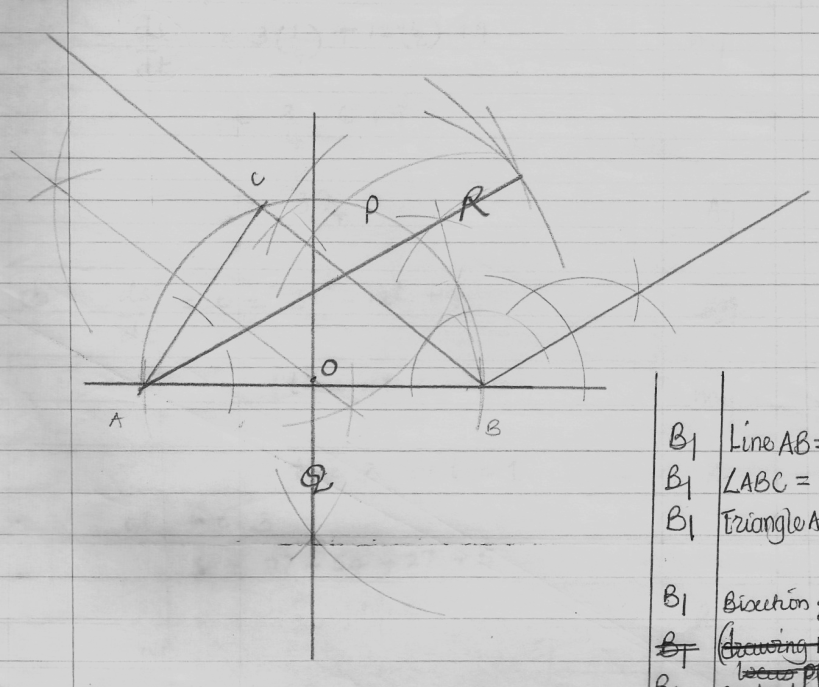 C
P
R
O
A
B
Q
B1 Line AB =
B1 ∠ABC =
B1 Triangle A
B1 Bisection
B1 (drawing
locus